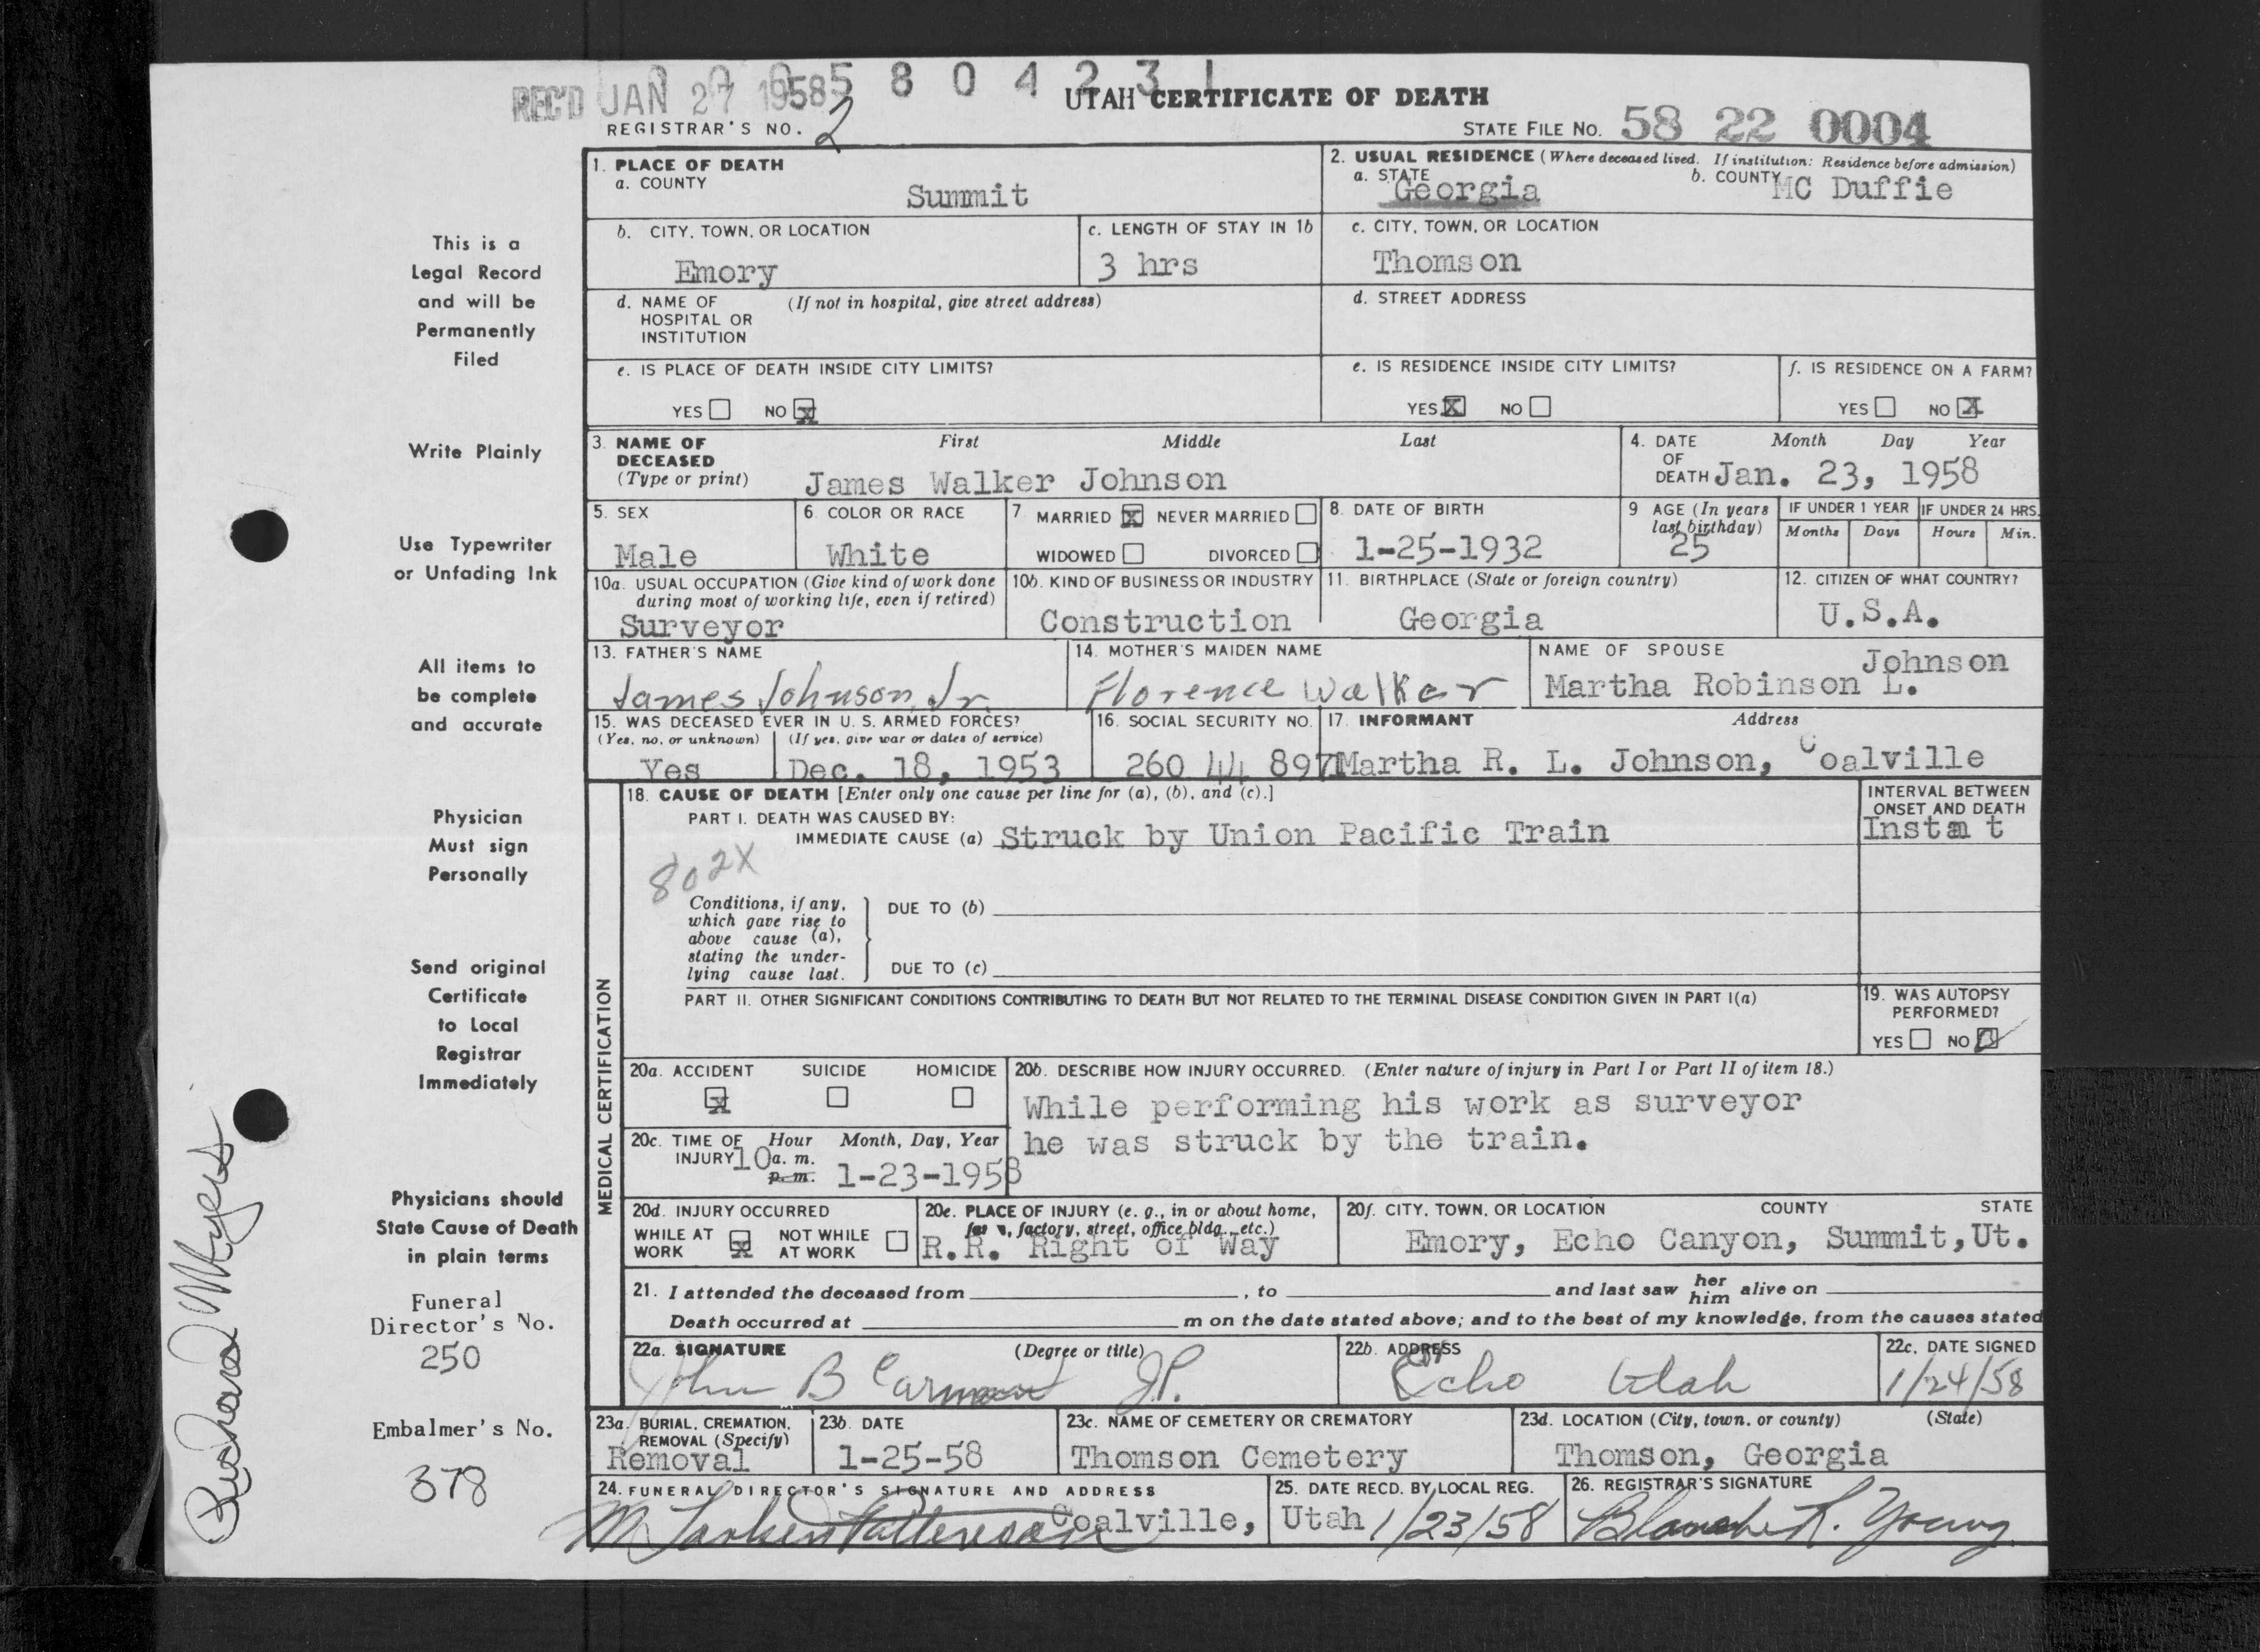 REC'D JAN 27 1958
5 8 0 4 2 3 1
UTAH CERTIFICATE OF DEATH
REGISTRAR'S NO. 2
STATE FILE NO. 58 22 0004
1. PLACE OF DEATH
a. COUNTY
Summit
2. USUAL RESIDENCE (Where deceased lived. If institution: Residence before admission)
a. STATE Georgia b. COUNTY MC Duffie
b. CITY, TOWN, OR LOCATION
Emory
c. LENGTH OF STAY IN 1b
3 hrs
c. CITY, TOWN, OR LOCATION
Thomson
d. NAME OF HOSPITAL OR INSTITUTION (If not in hospital, give street address)
d. STREET ADDRESS
e. IS PLACE OF DEATH INSIDE CITY LIMITS?
YES NO X
e. IS RESIDENCE INSIDE CITY LIMITS?
YES X NO
f. IS RESIDENCE ON A FARM?
YES NO X
3. NAME OF DECEASED (Type or print) First Middle Last
James Walker Johnson
4. DATE OF DEATH Month Day Year
Jan. 23, 1958
5. SEX
Male
6. COLOR OR RACE
White
7 MARRIED X NEVER MARRIED
WIDOWED DIVORCED
8. DATE OF BIRTH
1-25-1932
9 AGE (In years last birthday)
25
IF UNDER 1 YEAR
Months Days
IF UNDER 24 HRS.
Hours Min.
10a. USUAL OCCUPATION (Give kind of work done during most of working life, even if retired)
Surveyor
10b. KIND OF BUSINESS OR INDUSTRY
Construction
11. BIRTHPLACE (State or foreign country)
Georgia
12. CITIZEN OF WHAT COUNTRY?
U.S.A.
13. FATHER'S NAME
James Johnson, Jr.
14. MOTHER'S MAIDEN NAME
Florence Walker
NAME OF SPOUSE
Johnson
Martha Robinson L.
15. WAS DECEASED EVER IN U. S. ARMED FORCES?
(Yes, no, or unknown) (If yes, give war or dates of service)
Yes Dec. 18, 1953
16. SOCIAL SECURITY NO.
260 44 8971
17. INFORMANT Address
Martha R. L. Johnson, Coalville
MEDICAL CERTIFICATION
18. CAUSE OF DEATH [Enter only one cause per line for (a), (b), and (c).]
PART I. DEATH WAS CAUSED BY:
IMMEDIATE CAUSE (a) Struck by Union Pacific Train
INTERVAL BETWEEN ONSET AND DEATH
802X
Conditions, if any, which gave rise to above cause (a), stating the under-lying cause last.
DUE TO (b)
DUE TO (c)
PART II. OTHER SIGNIFICANT CONDITIONS CONTRIBUTING TO DEATH BUT NOT RELATED TO THE TERMINAL DISEASE CONDITION GIVEN IN PART I(a)
19. WAS AUTOPSY PERFORMED?
YES NO
20a. ACCIDENT SUICIDE HOMICIDE
X
20b. DESCRIBE HOW INJURY OCCURRED. (Enter nature of injury in Part I or Part II of item 18.)
While performing his work as surveyor
he was struck by the train.
20c. TIME OF INJURY Hour Month, Day, Year
10 a. m.
p. m. 1-23-1958
20d. INJURY OCCURRED
WHILE AT WORK X NOT WHILE AT WORK
20e. PLACE OF INJURY (e. g., in or about home, farm, factory, street, office bldg., etc.)
R.R. Right of Way
20f. CITY, TOWN, OR LOCATION COUNTY STATE
Emory, Echo Canyon, Summit, Ut.
21. I attended the deceased from , to and last saw her him alive on
Death occurred at m on the date stated above; and to the best of my knowledge, from the causes stated
22a. SIGNATURE (Degree or title)
John B Carman J.P.
22b. ADDRESS
Echo Utah
22c. DATE SIGNED
1/24/58
23a. BURIAL, CREMATION, REMOVAL (Specify)
Removal
23b. DATE
1-25-58
23c. NAME OF CEMETERY OR CREMATORY
Thomson Cemetery
23d. LOCATION (City, town, or county) (State)
Thomson, Georgia
24. FUNERAL DIRECTOR'S SIGNATURE AND ADDRESS
Coalville, Utah
25. DATE RECD. BY LOCAL REG.
1/23/58
26. REGISTRAR'S SIGNATURE
Blanche R. Young
This is a
Legal Record
and will be
Permanently
Filed
Write Plainly
Use Typewriter
or Unfading Ink
All items to
be complete
and accurate
Physician
Must sign
Personally
Send original
Certificate
to Local
Registrar
Immediately
Physicians should
State Cause of Death
in plain terms
Funeral
Director's No.
250
Embalmer's No.
378
Richard Myers